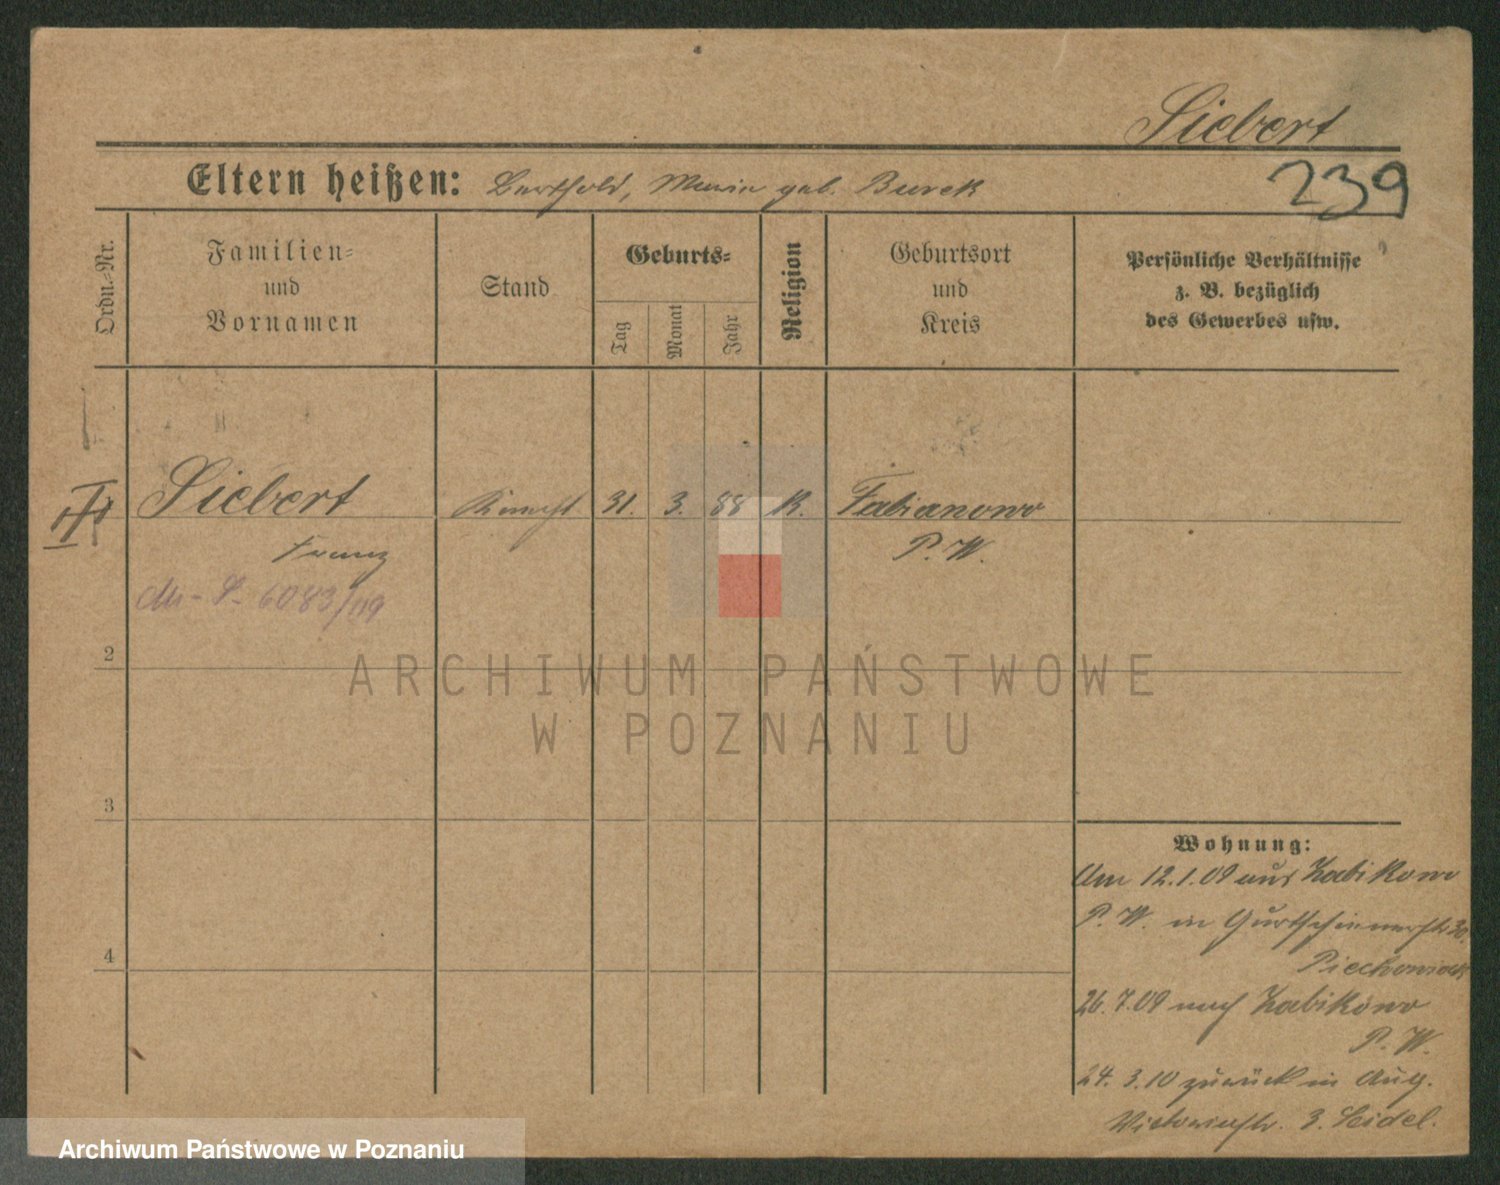 Siebert
239
Eltern heißen: Berthold, Maria geb. Burek
Ordn.-Nr.
Familien-
und
Vornamen
Stand
Geburts-
Tag
Monat
Jahr
Religion
Geburtsort
und
Kreis
Persönliche Verhältnisse
z. B. bezüglich
des Gewerbes usw.
Siebert Knecht 31. 3. 88 K. Fabianowo
Franz P. W.
6083/09
2
ARCHIWUM PAŃSTWOWE
W POZNANIU
3
Wohnung:
Am 12.1.09 aus Zabikowo
P. W. in Gurtschinerstr 30.
Piechowiak
4
26.7.09 nach Zabikowo
P. W.
24. 3.10 zurück in Aug.
Victoriastr. 3. Seidel.
Archiwum Państwowe w Poznaniu